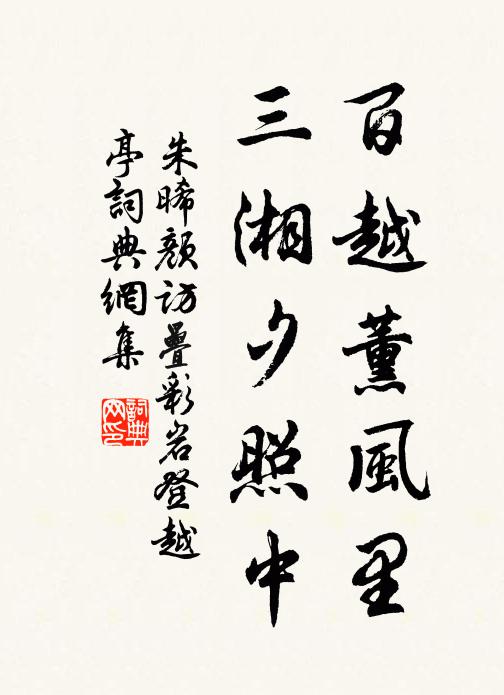 百越薰風里
三湘夕照中
朱晞顏訪疊彩岩登越
亭詞典網集
詞典
网印